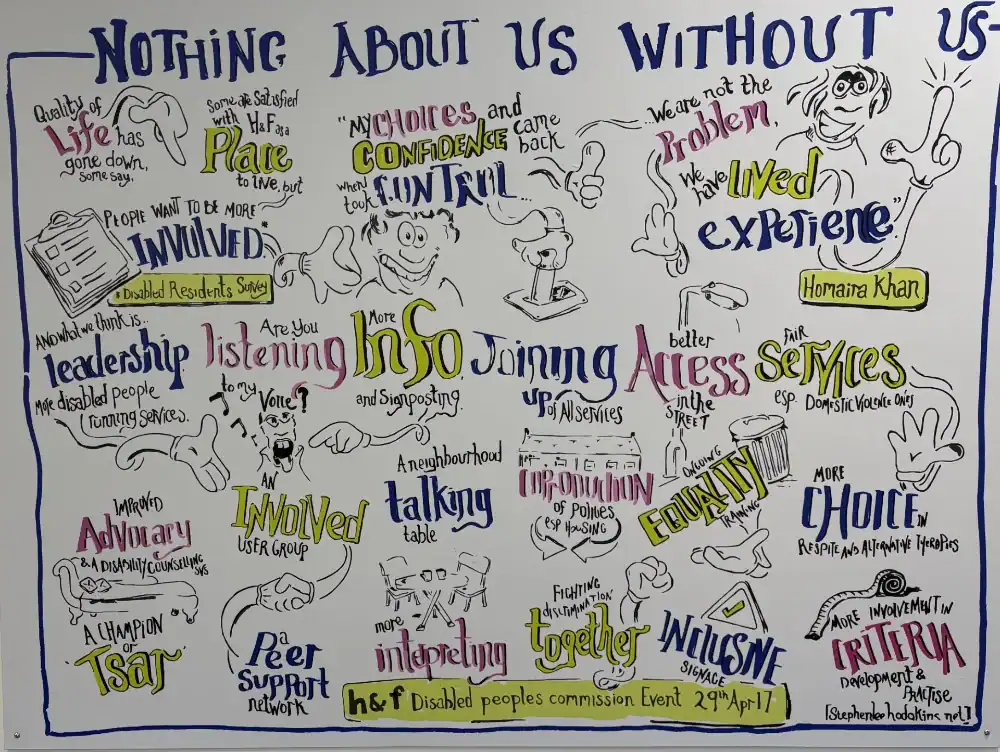 NOTHING ABOUT US WITHOUT US
Quality of
Life has
gone down,
some say.
Some are satisfied
with H&F as a
Place
to live, but
PEOPLE WANT TO BE MORE
INVOLVED.*
* Disabled Residents Survey
"MY CHOICES and
CONFIDENCE came
back
when I
took CONTROL...
...We are not the
Problem,
We
have lived
experience."
Homaira Khan
AND what we think is...
leadership
More disabled people
running services.
Are You
listening
to my
Voice?
More
Info
and Signposting.
Joining
up of All services
better
Access
in the
STREET
FAIR
SERVICES
esp. DOMESTIC VIOLENCE ONES
IMPROVED
Advocacy
& A DISABILITY COUNSELLING
SVS
AN
INVOLVED
USER GROUP
A neighbourhood
talking
table
COPRODUCTION
OF POLICIES
esp HOUSING
ONGOING
EQUALITY
TRAINING
MORE
CHOICE IN
RESPITE AND ALTERNATIVE THERAPIES
A CHAMPION
or
'Tsar'
a
Peer
SUPPORT
network
more
intepreting
FIGHTING
discrimination
together
INCLUSIVE
SIGNAGE
MORE INVOLVEMENT IN
CRITERIA
Development &
PRACTISE
h&f Disabled peoples commission Event 29th Apr 17
[Stephenleehodgkins.net]